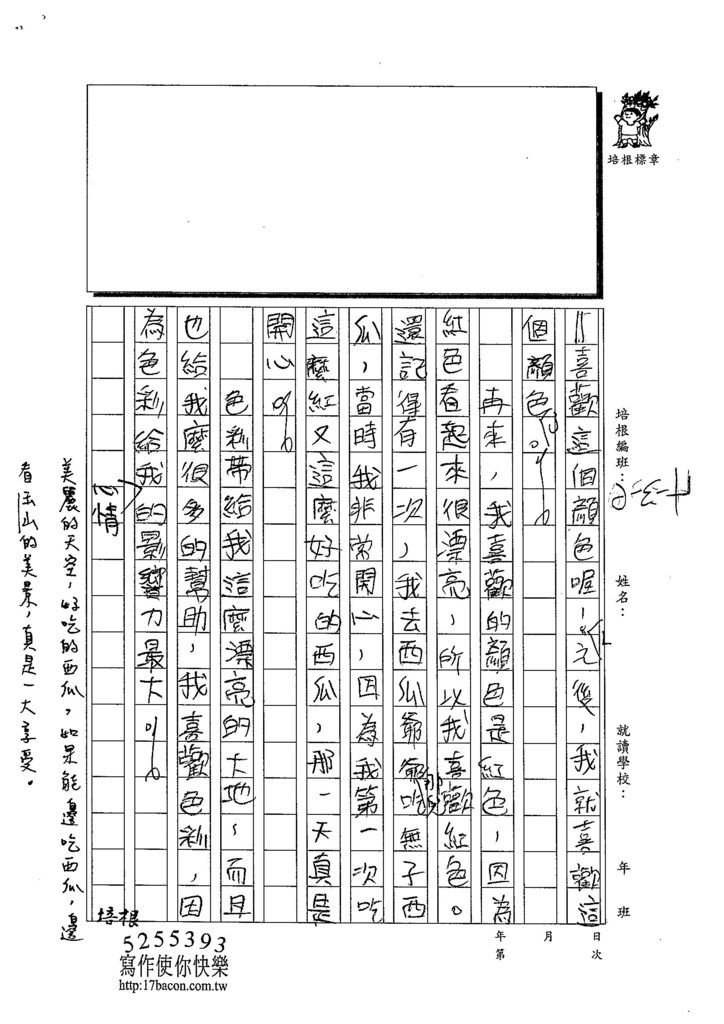 培根標章
培根編班：
姓名：
就讀學校：
年 班
年 月 日
第 次
喜歡這個顏色喔，之後，我就喜歡這
個顏色。
再來，我喜歡的顏色是紅色，因為
紅色看起來很漂亮，所以我喜歡紅色。
還記得有一次，我去西瓜爺爺那兒吃無子西
瓜，當時我非常開心，因為我第一次吃
這麼紅又這麼好吃的西瓜，那一天真是
開心。
色彩帶給我這麼漂亮的大地，而且
也給我麼很多的幫助，我喜歡色彩，因
為色彩給我的影響力最大。
心情
美麗的天空，好吃的西瓜，如果能邊吃西瓜，邊
看玉山的美景，真是一大享受。
培根
5255393
寫作使你快樂
http:17bacon.com.tw